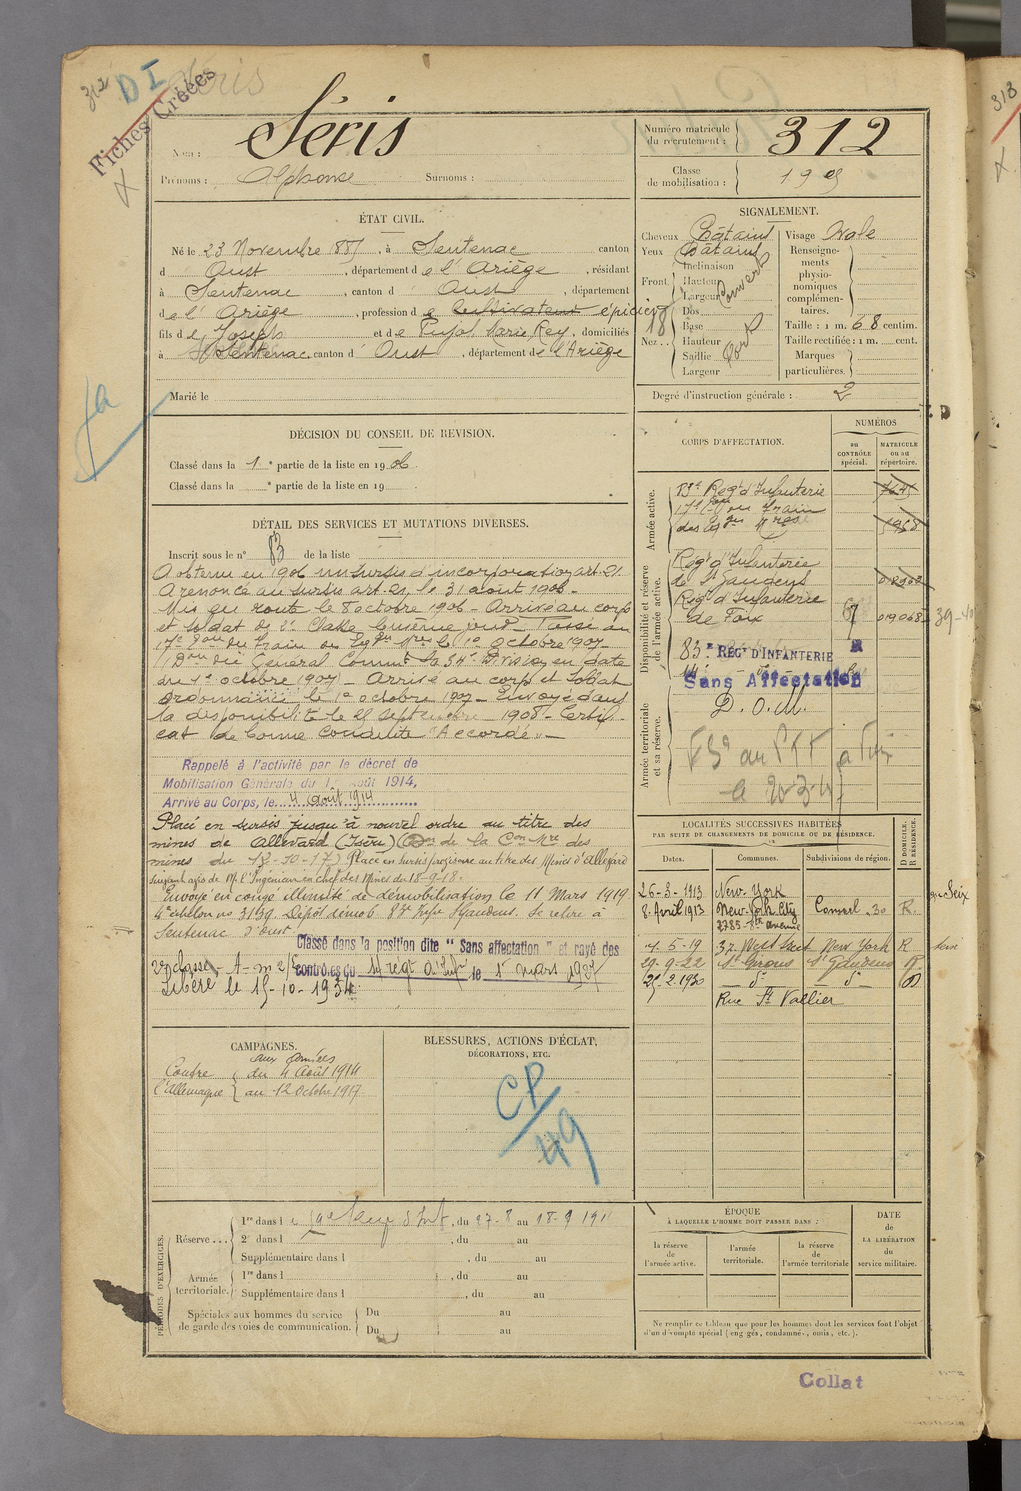 312
D I
Séris
Fiches Créées
Nom : Séris
Prénoms : Alphonse Surnoms :
Numéro matricule
du recrutement : 312
Classe
de mobilisation : 19
ÉTAT CIVIL.
Né le 23 Novembre 1885, à Sentenac canton
d Oust, département de l'Ariège, résidant
à Sentenac, canton d Oust, département
de l'Ariège, profession de Cultivateur épicier
fils de Joseph et de Pujol Marie Rey, domiciliés
à Sentenac, canton d' Oust, département de l'Ariège
Marié le
SIGNALEMENT.
Cheveux Châtains Visage Ovale
Yeux Châtains
Front. Inclinaison
Hauteur
Largeur
Nez. Dos
Base
Hauteur
Saillie
Largeur
Renseigne-
ments
physio-
nomiques
complémen-
taires.
Taille : 1 m. 68 centim.
Taille rectifiée : 1 m. cent.
Marques
particulières.
Degré d'instruction générale : 2
DÉCISION DU CONSEIL DE RÉVISION.
Classé dans la 1e partie de la liste en 1906
Classé dans la e partie de la liste en 19
DÉTAIL DES SERVICES ET MUTATIONS DIVERSES.
Inscrit sous le n° 83 de la liste
A obtenu en 1906 un sursis d'incorporation art. 21
A renoncé au sursis art. 21, le 31 août 1906 -
Mis en route le 8 octobre 1906 - Arrivé au corps
et soldat de 2e Classe le même jour - Passé au
17e Eon du train des Eges Mres le 1er Octobre 1907
(Don du Général Commt la 34e Division en date
du 1er octobre 1907) - Arrivé au corps et soldat
ordonnance le 1er octobre 1907 - Envoyé dans
la disponibilité le 21 septembre 1908 - Certifi-
cat de bonne conduite "Accordé" -
Rappelé à l'activité par le décret de
Mobilisation Générale du 1er août 1914,
Arrivé au Corps, le 4 août 1914
Placé en sursis jusqu'à nouvel ordre au titre des
mines de Allevard (Isère) (Don de la Con Mre des
mines du 12-10-17) Placé en sursis provisoire au titre des Mines d'Allevard
suivant avis de M. l'Ingénieur en chef des Mines du 18-9-18.
Envoyé en congé illimité de démobilisation le 11 Mars 1919
4e échelon no 3149. Dépôt démob 83e Infie St Gaudens. Se retire à
Sentenac d'Oust
Classé dans la position dite "Sans affectation" et rayé des
contrôles du régt d'Infie le 1er mars 1927
Libéré le 15-10-1934
CORPS D'AFFECTATION.
NUMÉROS
au
CONTRÔLE
spécial.
MATRICULE
ou au
répertoire.
Armée active.
83e Regt d'Infanterie
17e Eon du train
des Eges Mres
Disponibilité et réserve
de l'armée active.
Regt d'Infanterie
de St Gaudens
Regt d'Infanterie
de Foix
83e REGt D'INFANTERIE
Sans Affectation
Armée territoriale
et sa réserve.
D. O. M.
LOCALITÉS SUCCESSIVES HABITÉES
PAR SUITE DE CHANGEMENTS DE DOMICILE OU DE RÉSIDENCE.
Dates. Communes. Subdivisions de région. D DOMICILE. R RÉSIDENCE.
26-3-1913 New-York
8 Avril 1913 New-York City R.
2785 - 8e avenue
7-5-19 West New York R
29-9-22 St Girons St Gaudens
25-2-1930 d° d°
Rue St Vallier
CAMPAGNES.
aux armées
Contre du 4 Août 1914
l'Allemagne au 12 Octobre 1917
BLESSURES, ACTIONS D'ÉCLAT,
DÉCORATIONS, ETC.
CP
49
PÉRIODES D'EXERCICES.
Réserve... 1re dans l, du 27-8 au 18-9 1911
2e dans l, du au
Supplémentaire dans l, du au
Armée
territoriale. 1re dans l, du au
Supplémentaire dans l, du au
Spéciales aux hommes du service
de garde des voies de communication. Du au
Du au
ÉPOQUE
À LAQUELLE L'HOMME DOIT PASSER DANS :
la réserve
de
l'armée active.
l'armée
territoriale.
la réserve
de
l'armée territoriale
DATE
de
LA LIBÉRATION
du
service militaire.
Ne remplir ce tableau que pour les hommes dont les services font l'objet
d'un décompte spécial (engagés, condamnés, omis, etc.).
Collat
313